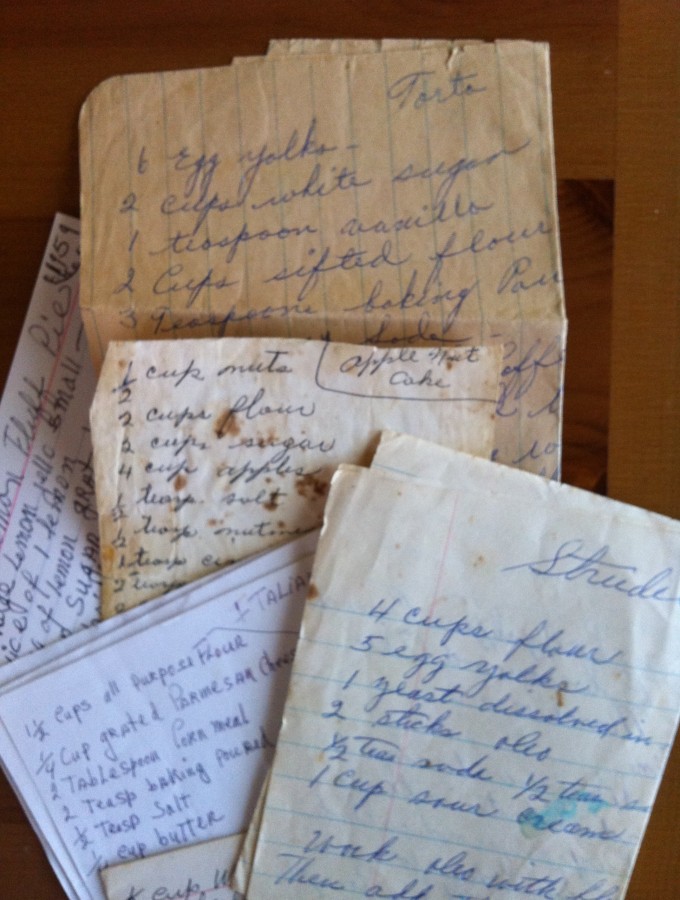 Torto
6 Egg yolks -
2 cups white sugar
1 teaspoon vanilla
2 Cups sifted flour
3 Teaspoons baking Pow
Soda -
apple nut
Cake
1/2 cup nuts
2 cups flour
2 cups sugar
4 cup apples
teasp. salt
1/2 teasp
1 teasp
2 teasp
Fluff Pie
Lemon Jello small
juice of 1 lemon
of lemon
Sugar
ITALIA
1 1/2 Cups all PurPose FLOUR
1/4 Cup grated Parmesan Chees
2 TABLespoon Corn meal
2 Teasp baking Poured
1/2 Teasp Salt
cup butter
cup
Strude
4 cups flour
5 egg yolks
1 yeast dissolved in
2 sticks oleo
1/2 teas soda 1/2 teas
1 cup sour cream
Work oleo with fl
Then add